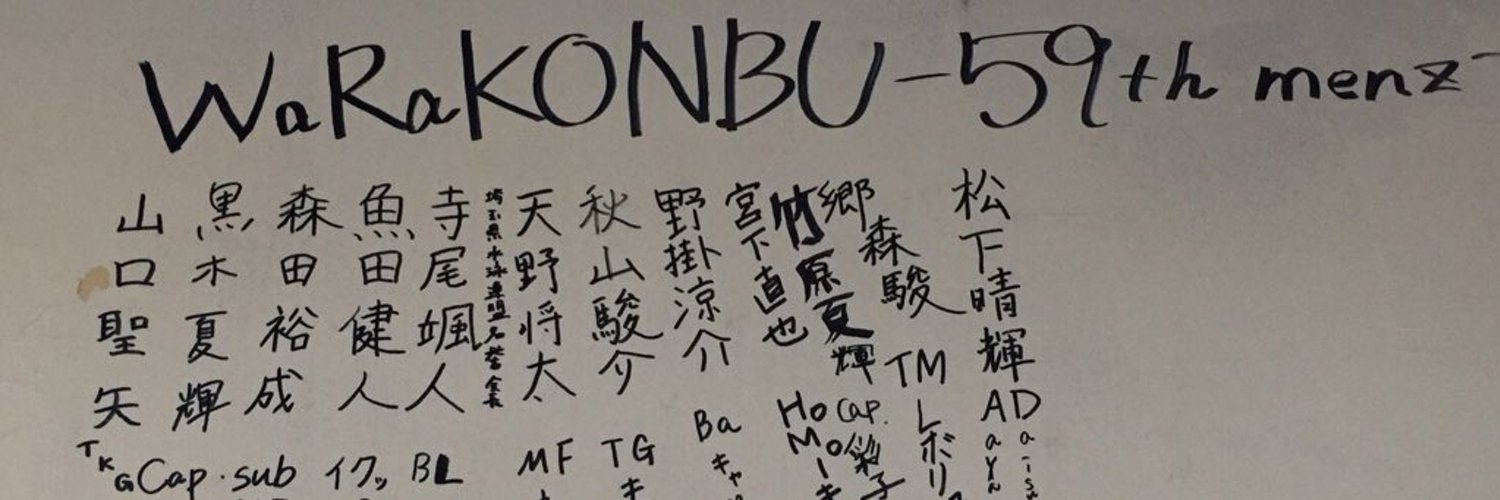 WaRaKONBU-59th menz
松下晴輝 AD
郷森駿 TM
竹原夏輝 Cap.
宮下直也 HoMo
野掛涼介 Ba
秋山駿介 TG
天野将太 MF
埼玉県水泳連盟名誉会長
寺尾颯人 BL
魚田健人 イクッ
森田裕成 sub
黒木夏輝 Cap.
山口聖矢 TKG